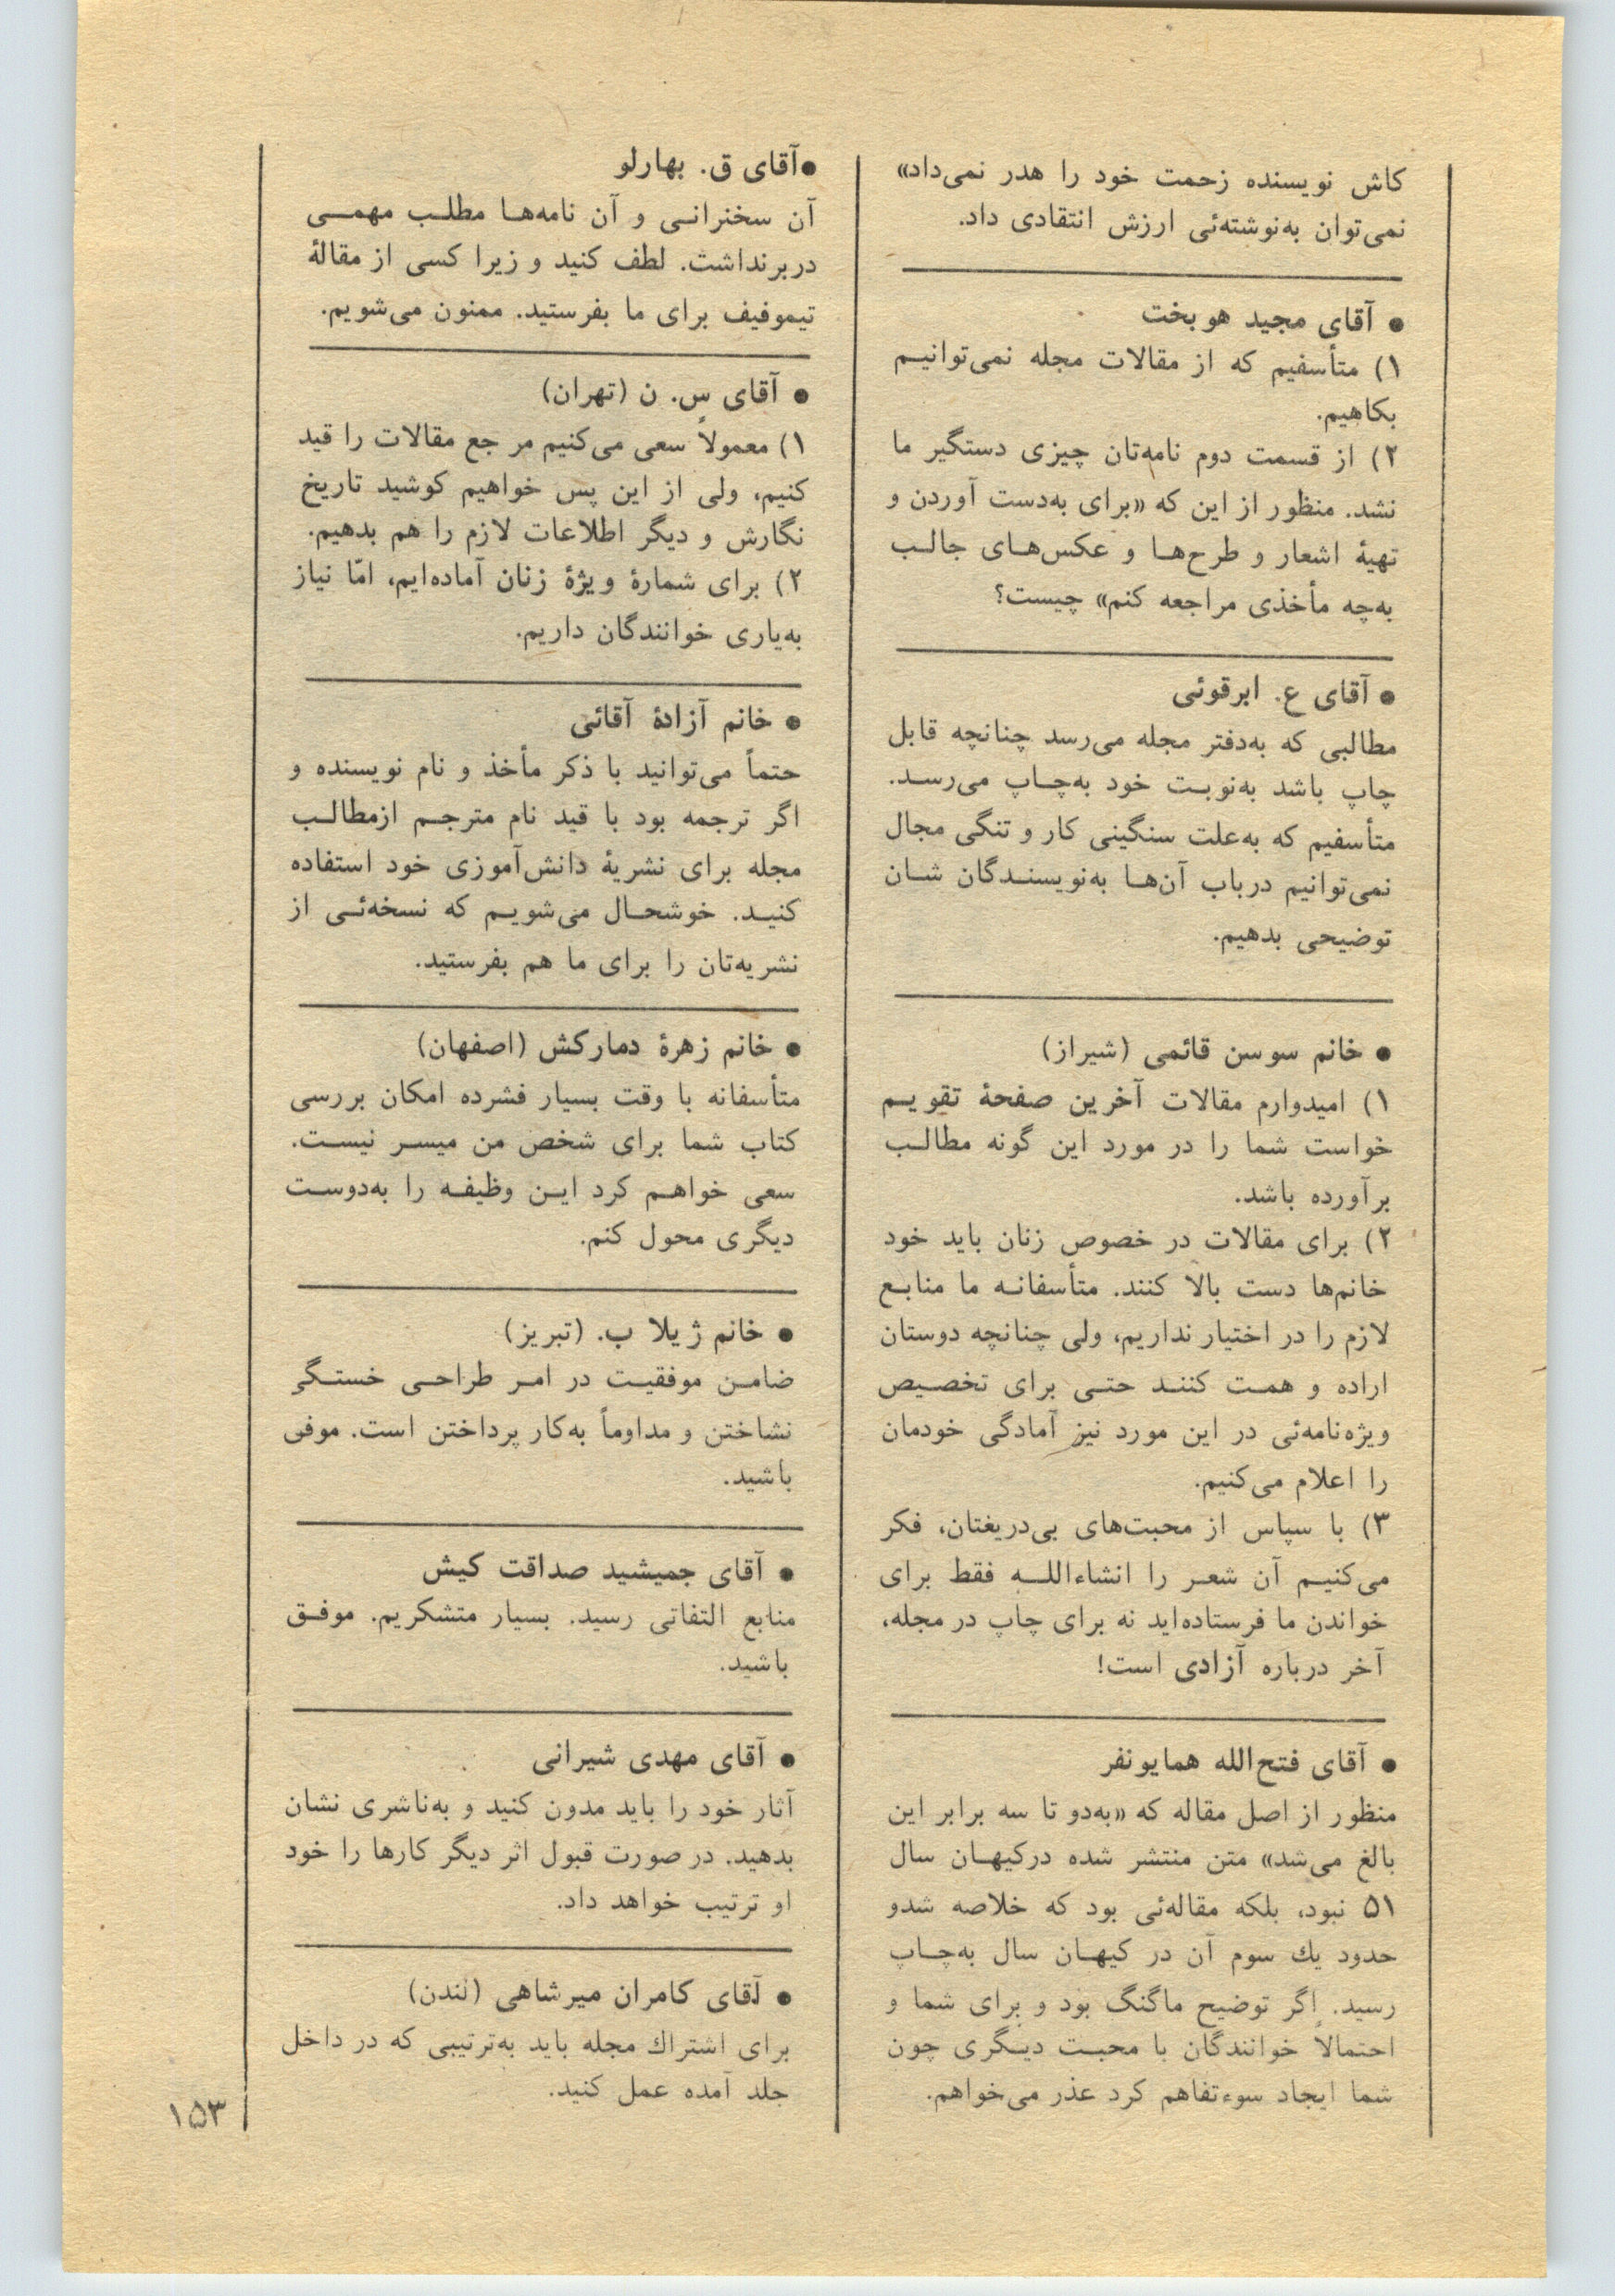 کاش نویسنده زحمت خود را هدر نمی‌داد»
نمی‌توان به‌نوشته‌ئی ارزش انتقادی داد.
● آقای مجید هوبخت
۱) متأسفیم که از مقالات مجله نمی‌توانیم
بکاهیم.
۲) از قسمت دوم نامه‌تان چیزی دستگیر ما
نشد. منظور از این که «برای به‌دست آوردن و
تهیهٔ اشعار و طرح‌ها و عکس‌های جالب
به‌چه مأخذی مراجعه کنم» چیست؟
● آقای ع. ابرقوئی
مطالبی که به‌دفتر مجله می‌رسد چنانچه قابل
چاپ باشد به‌نوبت خود به‌چاپ می‌رسد.
متأسفیم که به‌علت سنگینی کار و تنگی مجال
نمی‌توانیم درباب آن‌ها به‌نویسندگان شان
توضیحی بدهیم.
● خانم سوسن قائمی (شیراز)
۱) امیدوارم مقالات آخرین صفحهٔ تقویم
خواست شما را در مورد این گونه مطالب
برآورده باشد.
۲) برای مقالات در خصوص زنان باید خود
خانم‌ها دست بالا کنند. متأسفانه ما منابع
لازم را در اختیار نداریم، ولی چنانچه دوستان
اراده و همت کنند حتی برای تخصیص
ویژه‌نامه‌ئی در این مورد نیز آمادگی خودمان
را اعلام می‌کنیم.
۳) با سپاس از محبت‌های بی‌دریغتان، فکر
می‌کنیم آن شعر را انشاءالله فقط برای
خواندن ما فرستاده‌اید نه برای چاپ در مجله،
آخر درباره آزادی است!
● آقای فتح‌الله همایونفر
منظور از اصل مقاله که «به‌دو تا سه برابر این
بالغ می‌شد» متن منتشر شده درکیهان سال
۵۱ نبود، بلکه مقاله‌ئی بود که خلاصه شدو
حدود یك سوم آن در کیهان سال به‌چاپ
رسید. اگر توضیح ماگنگ بود و برای شما و
احتمالاً خوانندگان با محبت دیگری چون
شما ایجاد سوءتفاهم کرد عذر می‌خواهم.
●آقای ق. بهارلو
آن سخنرانی و آن نامه‌ها مطلب مهمی
دربرنداشت. لطف کنید و زیرا کسی از مقالهٔ
تیموفیف برای ما بفرستید. ممنون می‌شویم.
● آقای س. ن (تهران)
۱) معمولاً سعی می‌کنیم مرجع مقالات را قید
کنیم، ولی از این پس خواهیم کوشید تاریخ
نگارش و دیگر اطلاعات لازم را هم بدهیم.
۲) برای شمارهٔ ویژهٔ زنان آماده‌ایم، امّا نیاز
به‌یاری خوانندگان داریم.
● خانم آزادهٔ آقائی
حتماً می‌توانید با ذکر مأخذ و نام نویسنده و
اگر ترجمه بود با قید نام مترجم ازمطالب
مجله برای نشریهٔ دانش‌آموزی خود استفاده
کنید. خوشحال می‌شویم که نسخه‌ئی از
نشریه‌تان را برای ما هم بفرستید.
● خانم زهرهٔ دمارکش (اصفهان)
متأسفانه با وقت بسیار فشرده امکان بررسی
کتاب شما برای شخص من میسر نیست.
سعی خواهم کرد این وظیفه را به‌دوست
دیگری محول کنم.
● خانم ژیلا ب. (تبریز)
ضامن موفقیت در امر طراحی خستگی
نشاختن و مداوماً به‌کار پرداختن است. موفق
باشید.
● آقای جمیشید صداقت کیش
منابع التفاتی رسید. بسیار متشکریم. موفق
باشید.
● آقای مهدی شیرانی
آثار خود را باید مدون کنید و به‌ناشری نشان
بدهید. در صورت قبول اثر دیگر کارها را خود
او ترتیب خواهد داد.
● آقای کامران میرشاهی (لندن)
برای اشتراك مجله باید به‌ترتیبی که در داخل
جلد آمده عمل کنید.
۱۵۳